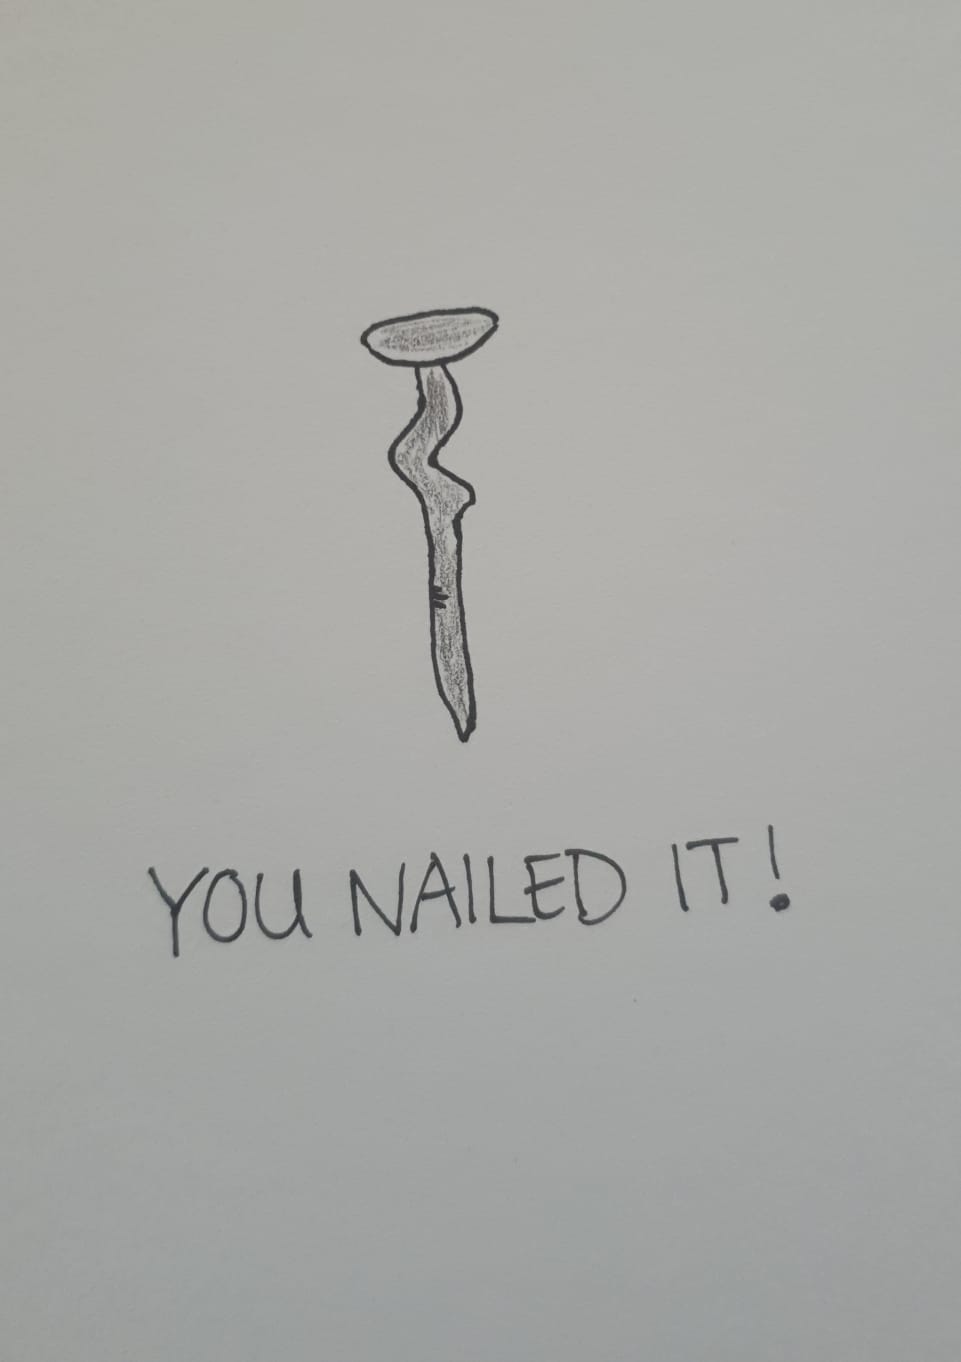 YOU NAILED IT!